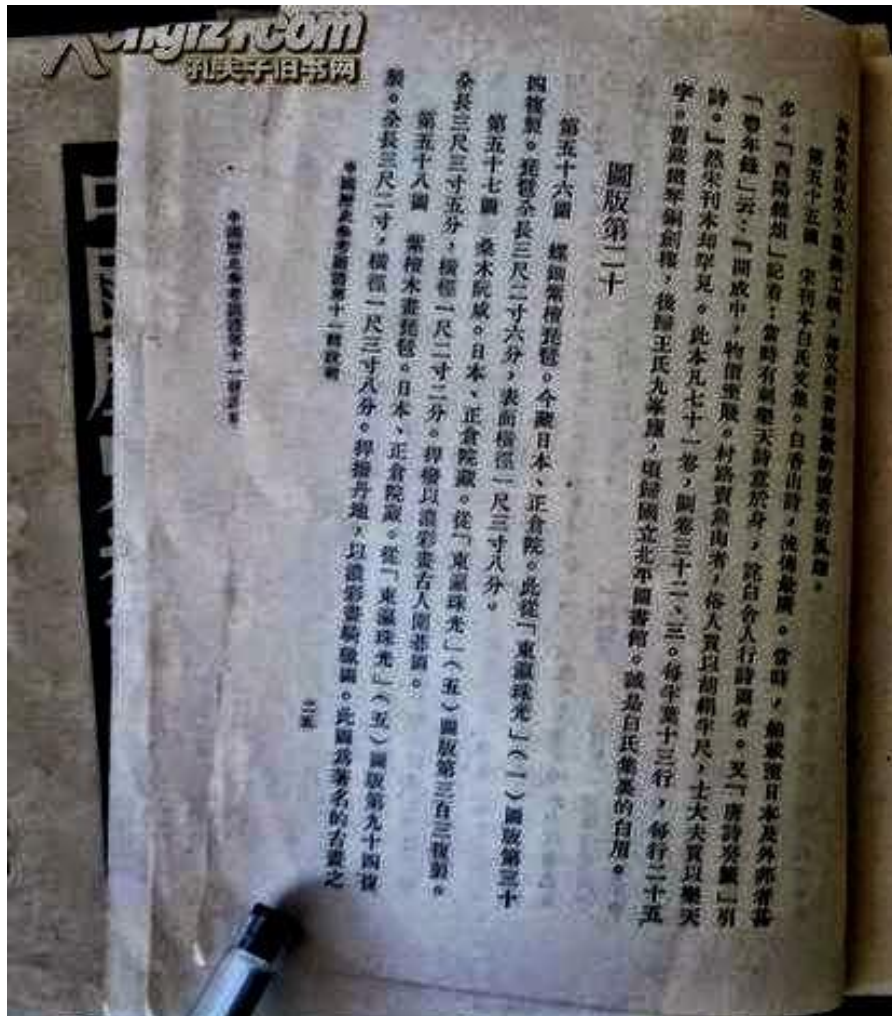 第五十五圖　宋刊本白氏文集。白香山詩，流傳最廣。當時，舶載至日本及外邦者甚
多。「酉陽雜俎」記着：當時有刺樂天詩意於身，詫白舍人行詩圖者。又「唐詩癸籤」引
「豐年錄」云：『開成中，物價至賤。村路賣魚肉者，俗人買以胡絹半尺，士大夫買以樂天
詩。』然宋刊本却罕見。此本凡七十一卷，闕卷三十二、三。每半葉十三行，每行二十五
字。舊藏鐵琴銅劍樓，後歸王氏九峯廬，頃歸國立北平圖書館。誠是白氏集裏的白眉。
圖版第二十
第五十六圖　螺鈿紫檀琵琶。今藏日本、正倉院。此從「東瀛珠光」（一）圖版第三十
四複製。琵琶全長三尺二寸六分，表面橫徑一尺三寸八分。
第五十七圖　桑木阮咸。日本、正倉院藏。從「東瀛珠光」（五）圖版第三百三複製。
全長三尺三寸五分，橫徑一尺二寸二分。捍撥以濃彩畫古人圍碁圖。
第五十八圖　紫檀木畫琵琶。日本、正倉院藏。從「東瀛珠光」（五）圖版第九十四複
製。全長三尺二寸，橫徑一尺三寸八分。捍撥丹地，以濃彩畫騎獵圖。此圖爲著名的古畫之
中國歷史參考圖譜第十一輯說明
二五
孔夫子旧书网